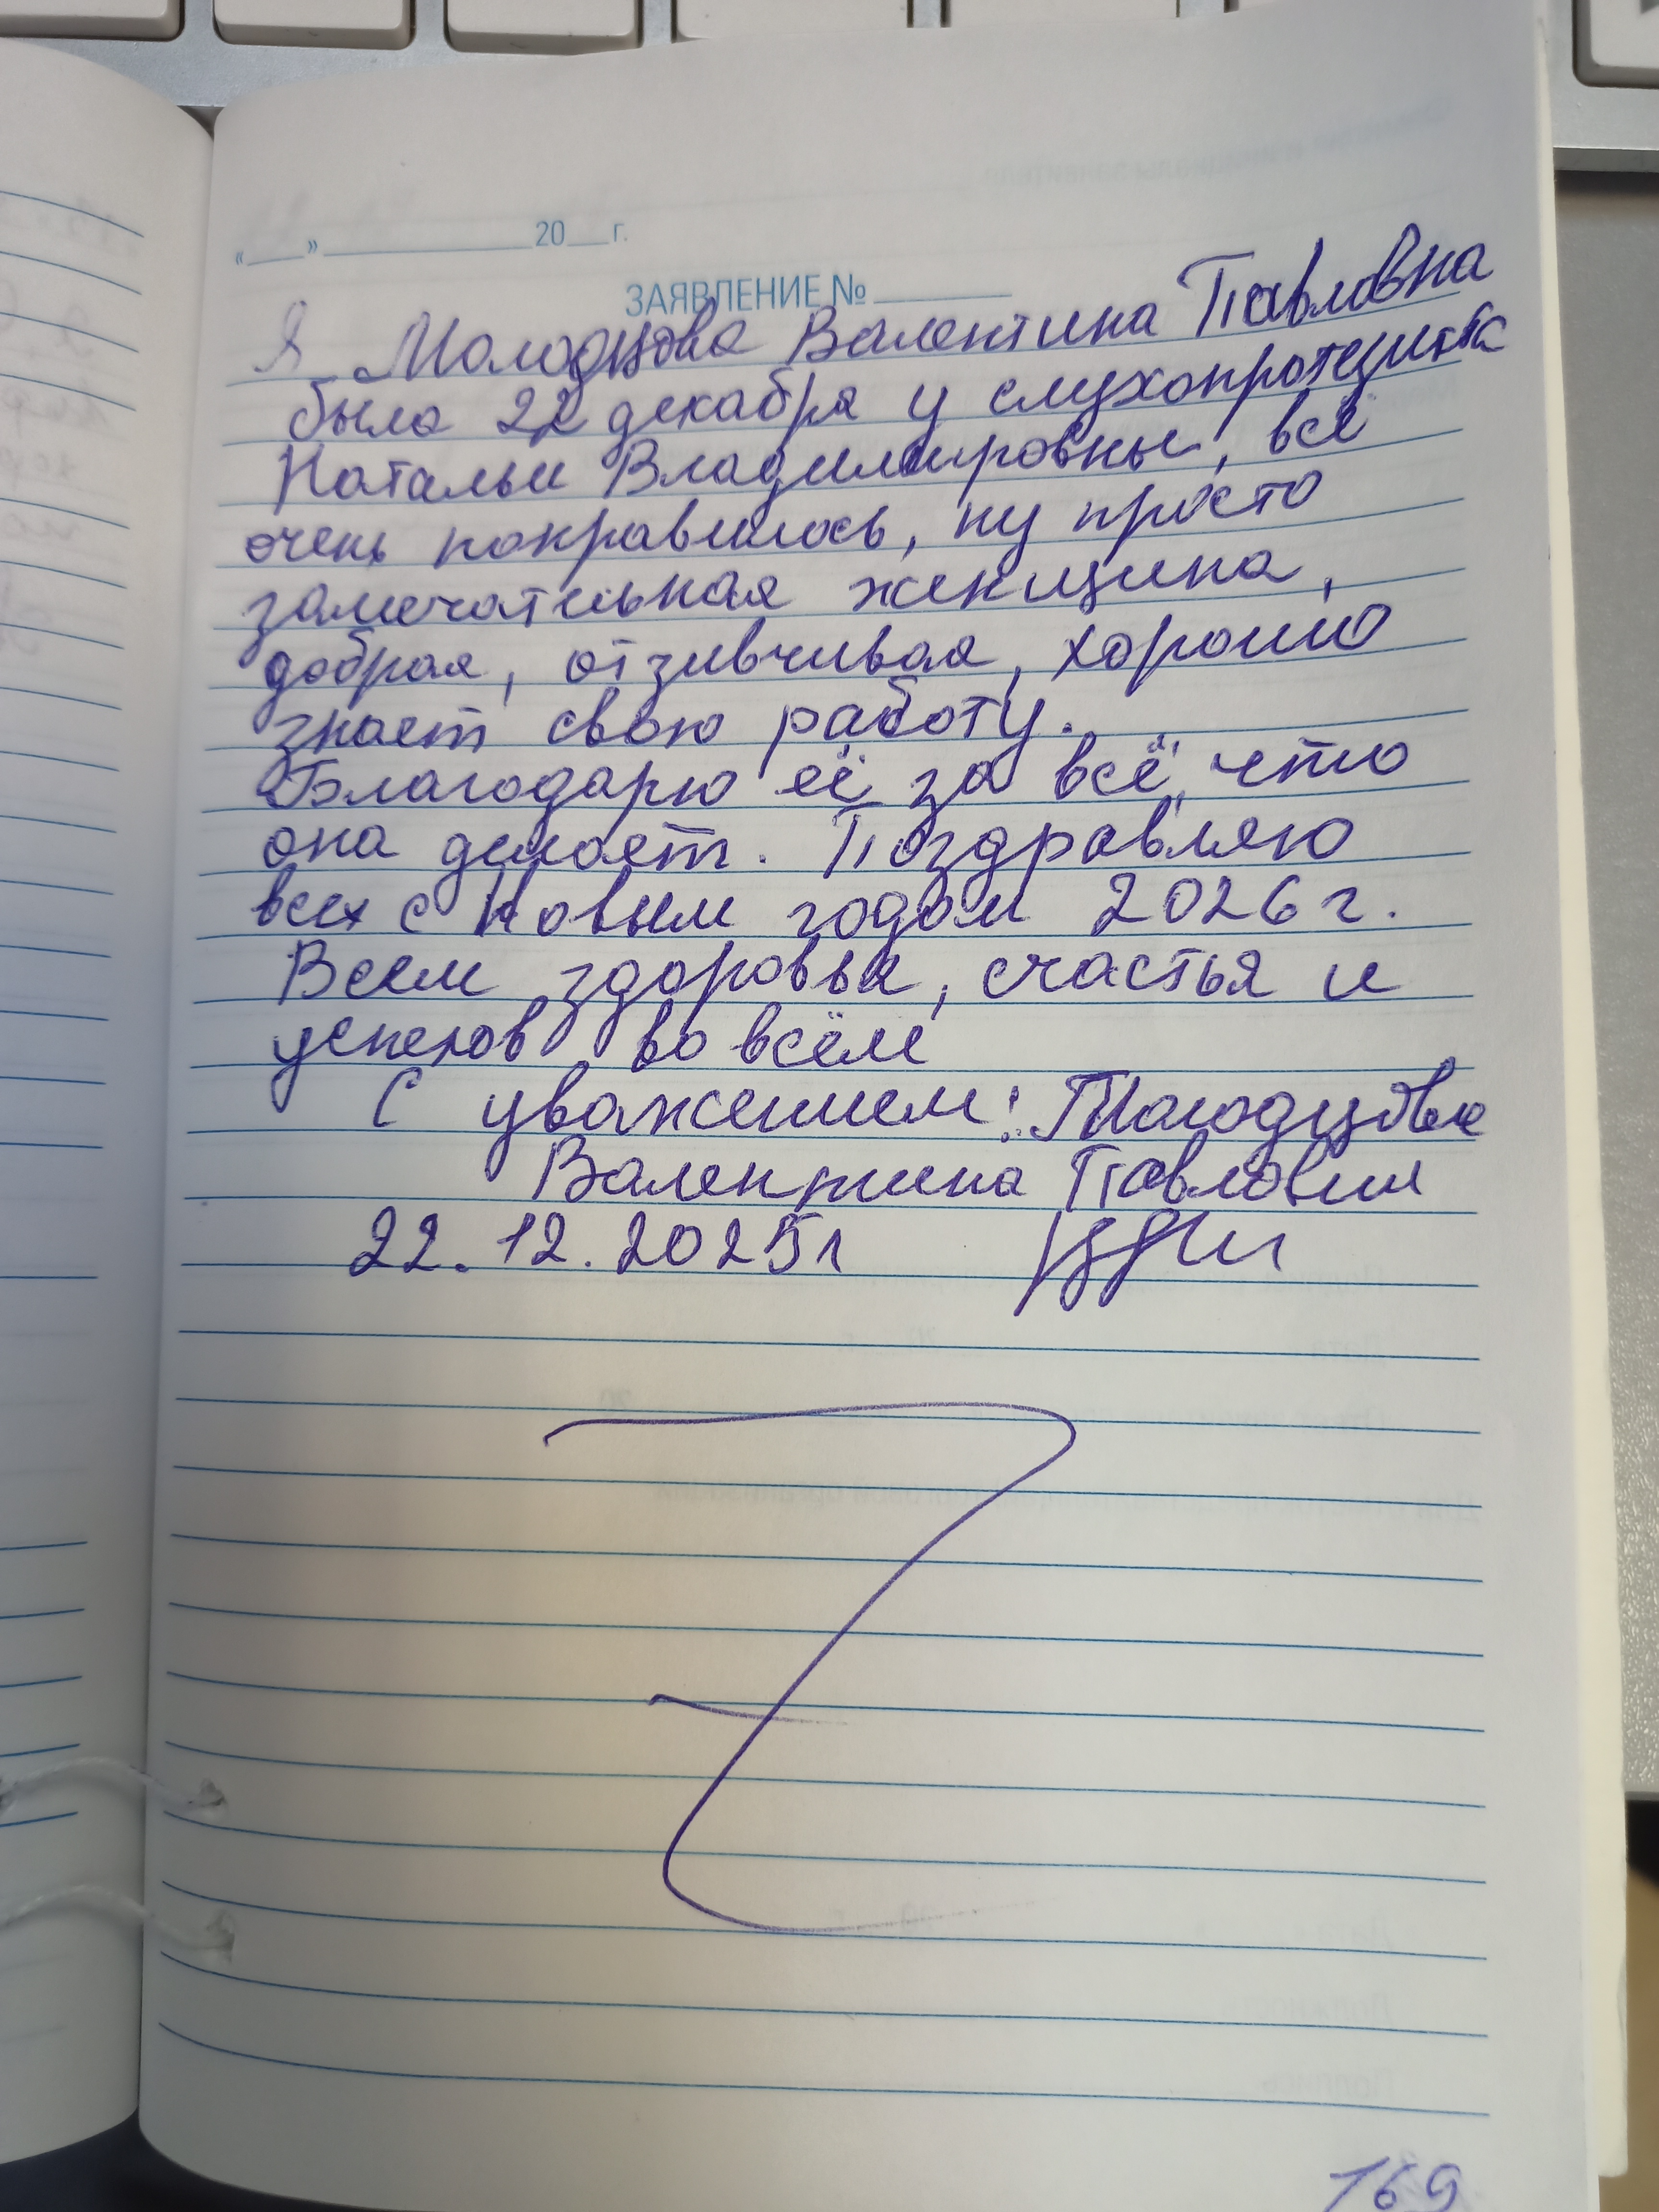 «___»__________20__г.
ЗАЯВЛЕНИЕ №______
Я Молодцова Валентина Павловна
была 22 декабря у слухопротезиста
Натальи Владимировны, всё
очень понравилось, ну просто
замечательная женщина,
добрая, отзывчивая, хорошо
знает свою работу.
Благодарю её за "всё", что
она делает. Поздравляю
всех с Новым годом 2026 г.
Всем здоровья, счастья и
успехов во всём
С уважением: Молодцова
Валентина Павловна
22.12.2025г
169